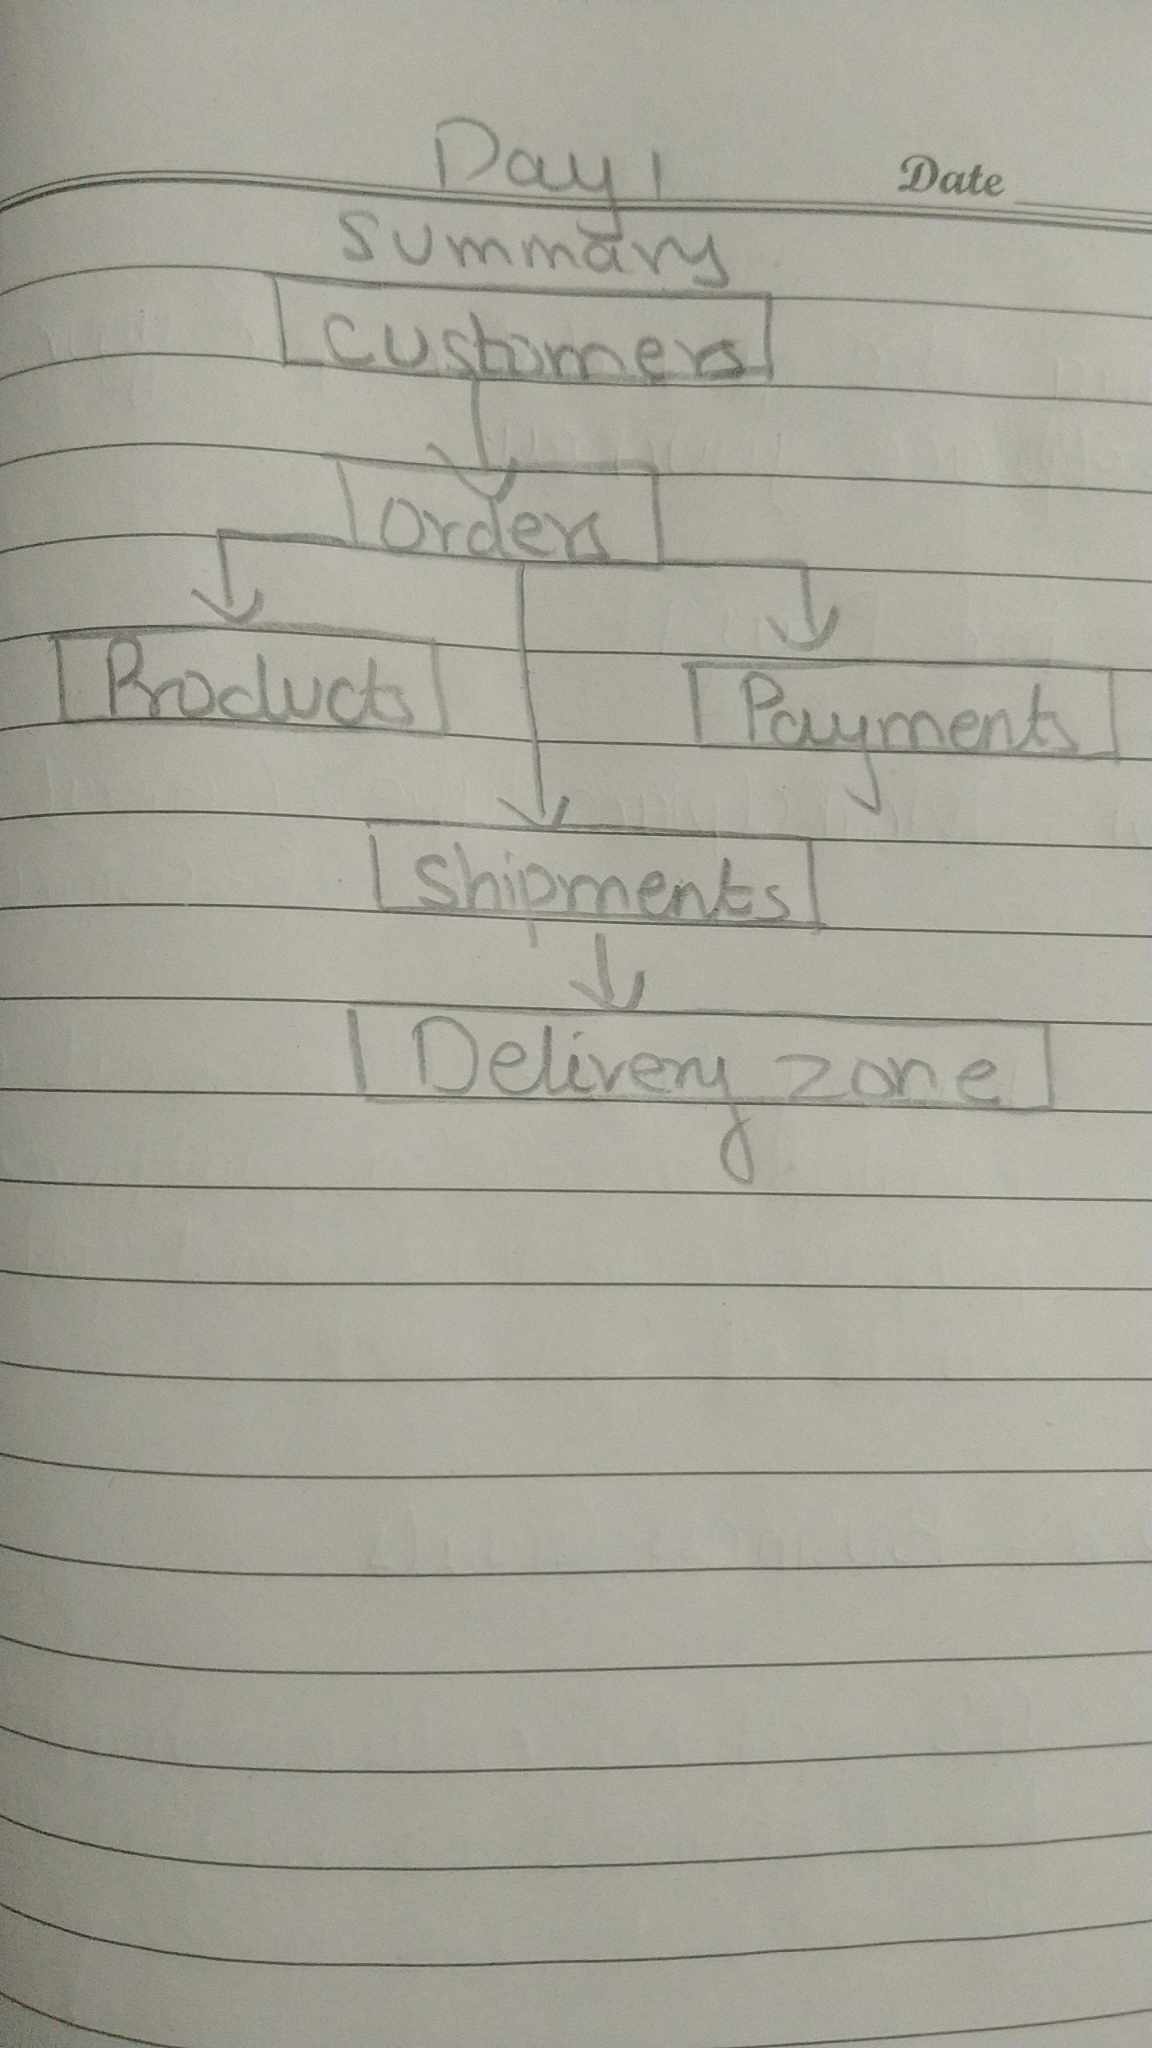 Day 1
Date
Summary
Customers
Orders
Products
Payments
Shipments
Delivery zone